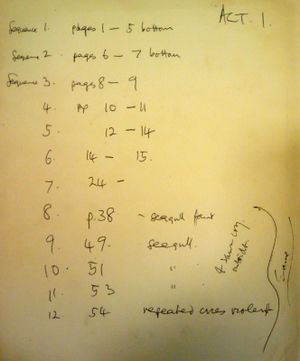 ACT. 1.
Sequence 1. pages 1 - 5 bottom
Sequence 2. pages 6 - 7 bottom
Sequence 3. pages 8 - 9
4. pp 10 - 11
5. 12 - 14
6. 14 - 15.
7. 24 -
8. p.38 - seagull faint
9. 49. seagull.
10. 51 "
11. 53 "
12 54 repeated cries violent